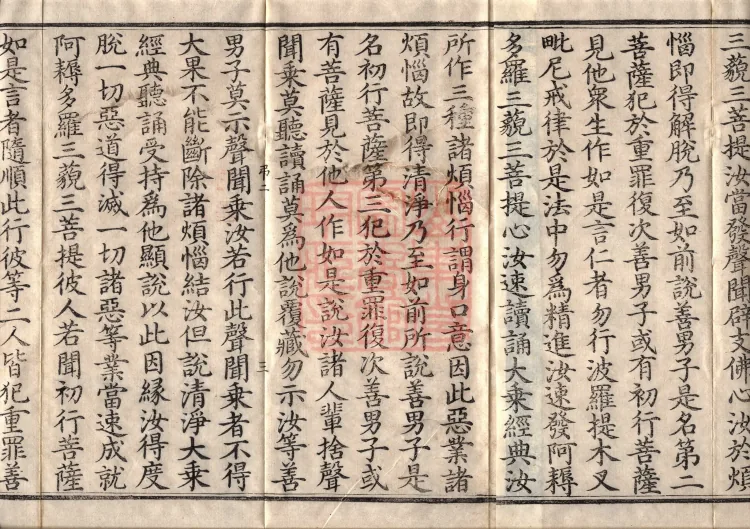 三藐三菩提汝當發聲聞辟支佛心汝於煩
惱即得解脫乃至如前說善男子是名第二
菩薩犯於重罪復次善男子或有初行菩薩
見他衆生作如是言仁者勿行波羅提木叉
毗尼戒律於是法中勿爲精進汝速發阿耨
多羅三藐三菩提心汝速讀誦大乘經典汝
所作三種諸煩惱行謂身口意因此惡業諸
煩惱故即得清淨乃至如前所說善男子是
名初行菩薩第三犯於重罪復次善男子或
有菩薩見於他人作如是說汝諸人輩捨聲
聞乘莫聽讀誦莫爲他說覆藏勿示汝等善
弔二 三
男子莫示聲聞乘汝若行此聲聞乘者不得
大果不能斷除諸煩惱結汝但說清淨大乘
經典聽誦受持為他顯說以此因緣汝得度
脫一切惡道得滅一切諸惡等業當速成就
阿耨多羅三藐三菩提彼人若聞初行菩薩
如是言者隨順此行彼等二人皆犯重罪善